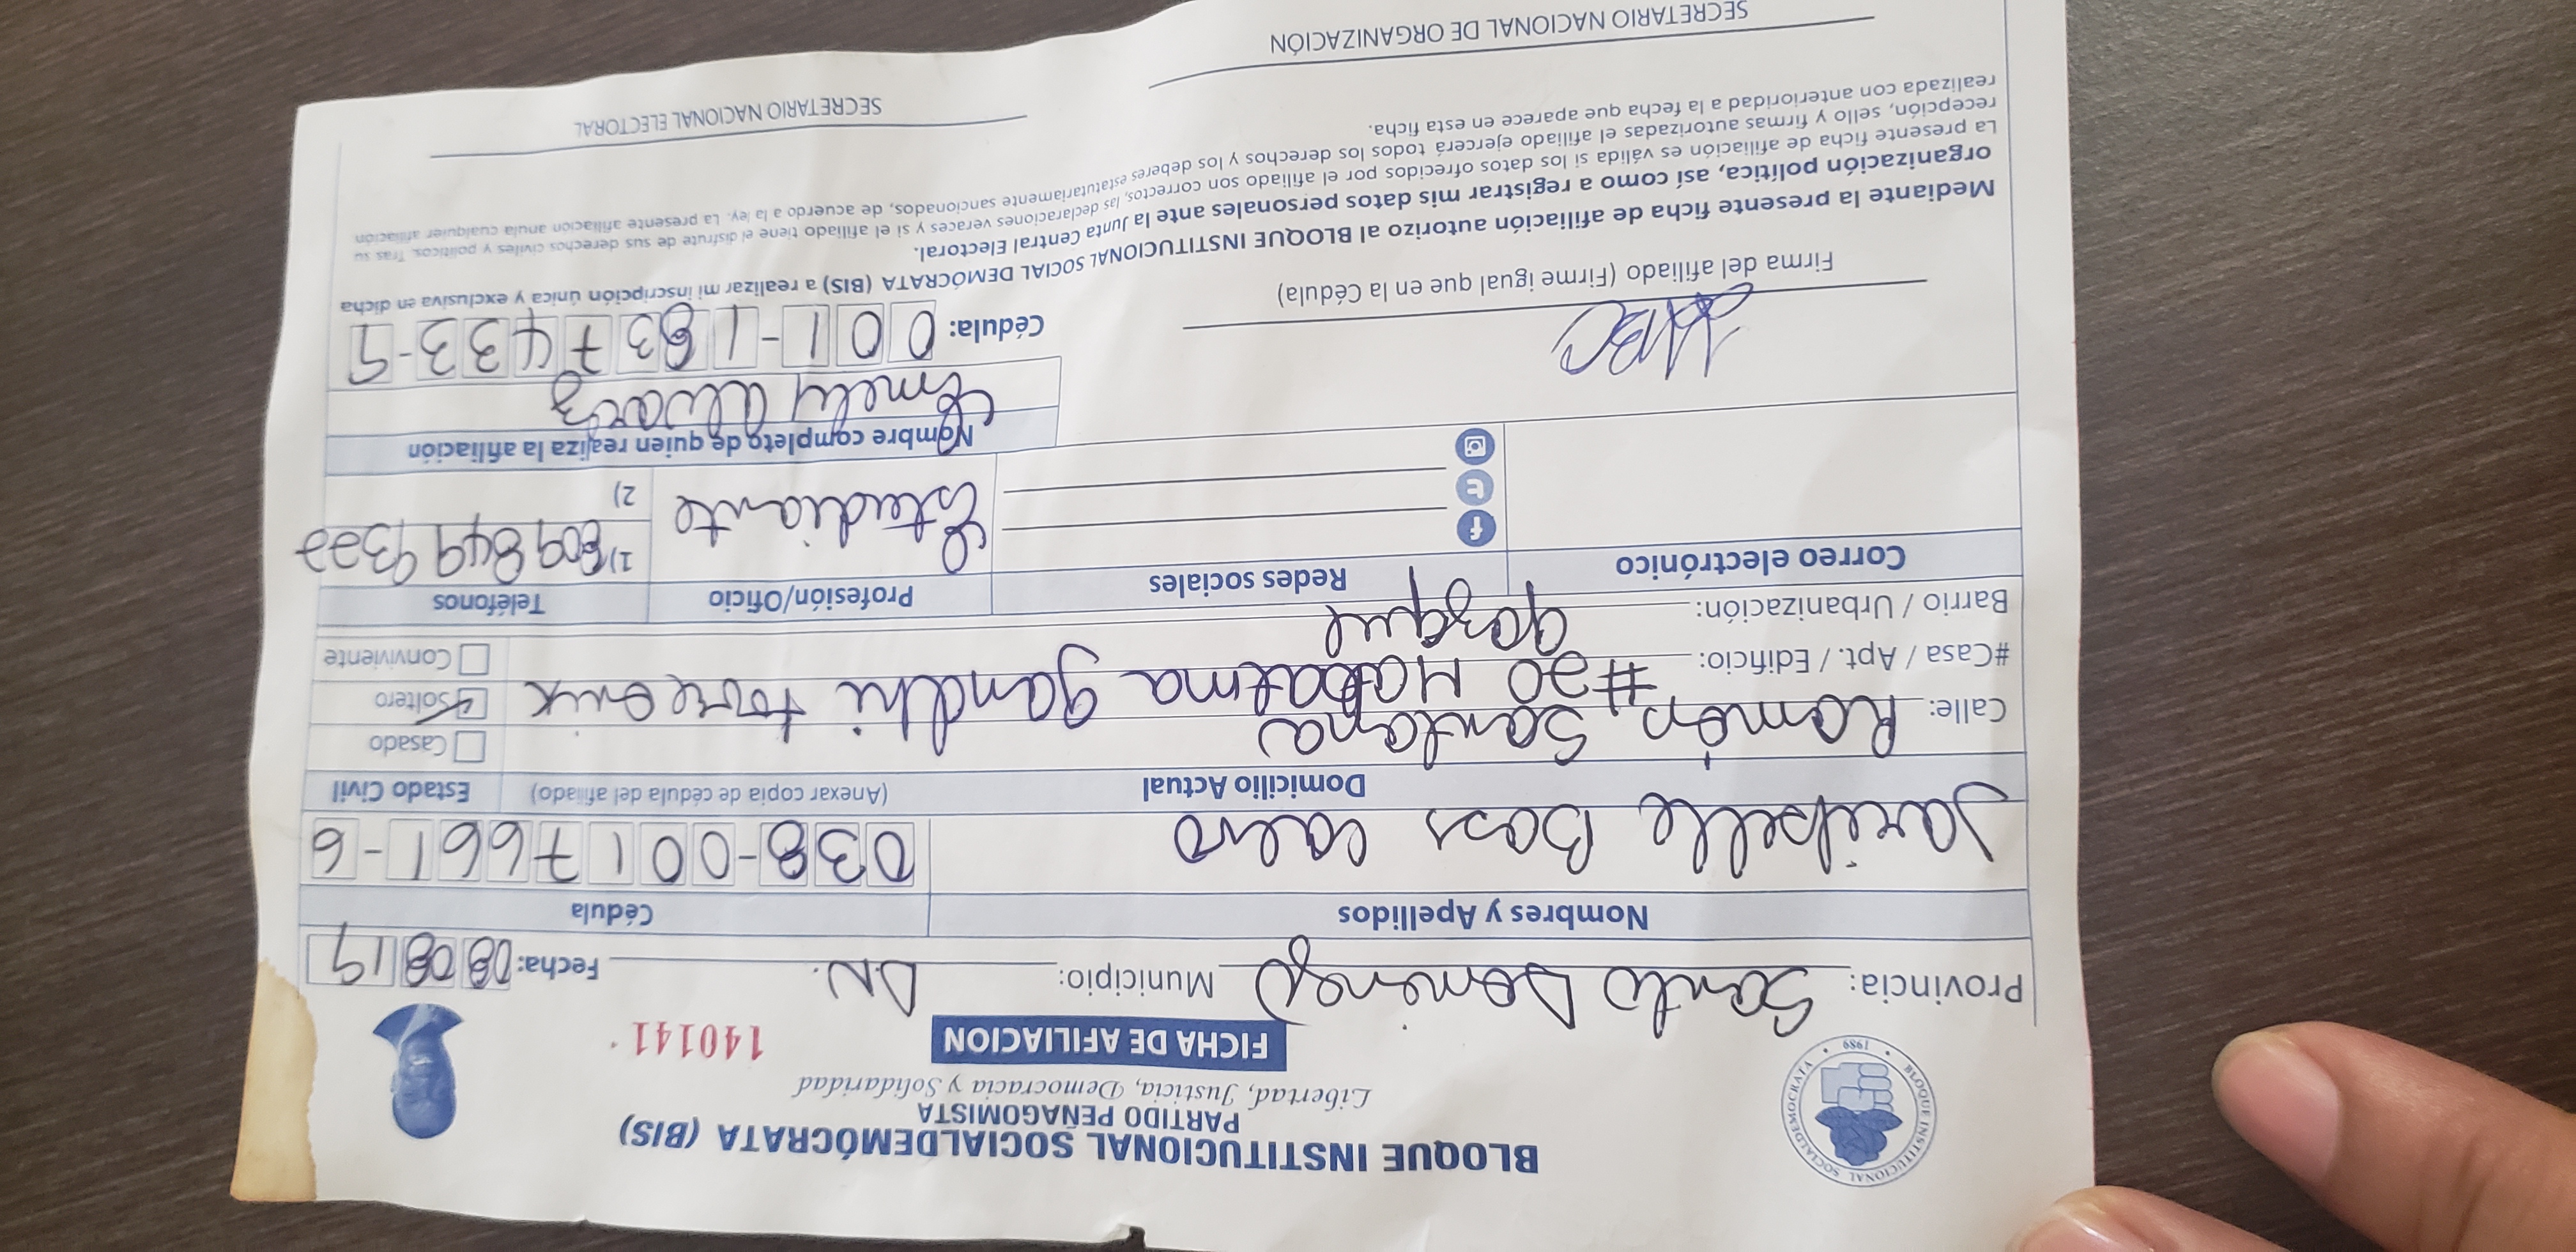 BLOQUE INSTITUCIONAL SOCIALDEMÓCRATA (BIS)
PARTIDO PEÑAGOMISTA
Libertad, Justicia, Democracia y Solidaridad
BLOQUE INSTITUCIONAL SOCIALDEMOCRATA • 1989 •
FICHA DE AFILIACION
140141
Provincia: Santo Domingo Municipio: D.N. Fecha: 08 08 19
Nombres y Apellidos Cédula
Bass 038-0017661-6
Domicilio Actual (Anexar copia de cédula del afiliado) Estado Civil
Calle: Ramón Santana
Casado
#Casa / Apt. / Edificio: #20 gandhi torre onix
Soltero
Barrio / Urbanización: gazque
Conviviente
Correo electrónico Redes sociales Profesión/Oficio Teléfonos
Estudiante
1) 809 849 93
2)
Nombre completo de quien realiza la afiliación
Emely alvarez
Cédula: 001-1637433-9
Firma del afiliado (Firme igual que en la Cédula)
Mediante la presente ficha de afiliación autorizo al BLOQUE INSTITUCIONAL SOCIAL DEMÓCRATA (BIS) a realizar mi inscripción única y exclusiva en dicha
organización política, así como a registrar mis datos personales ante la Junta Central Electoral.
La presente ficha de afiliación es válida si los datos ofrecidos por el afiliado son correctos, las declaraciones veraces y si el afiliado tiene el disfrute de sus derechos civiles y políticos. Tras su
recepción, sello y firmas autorizadas el afiliado ejercerá todos los derechos y los deberes estatutariamente sancionados, de acuerdo a la ley. La presente afiliación anula cualquier afiliación
realizada con anterioridad a la fecha que aparece en esta ficha.
SECRETARIO NACIONAL ELECTORAL
SECRETARIO NACIONAL DE ORGANIZACIÓN